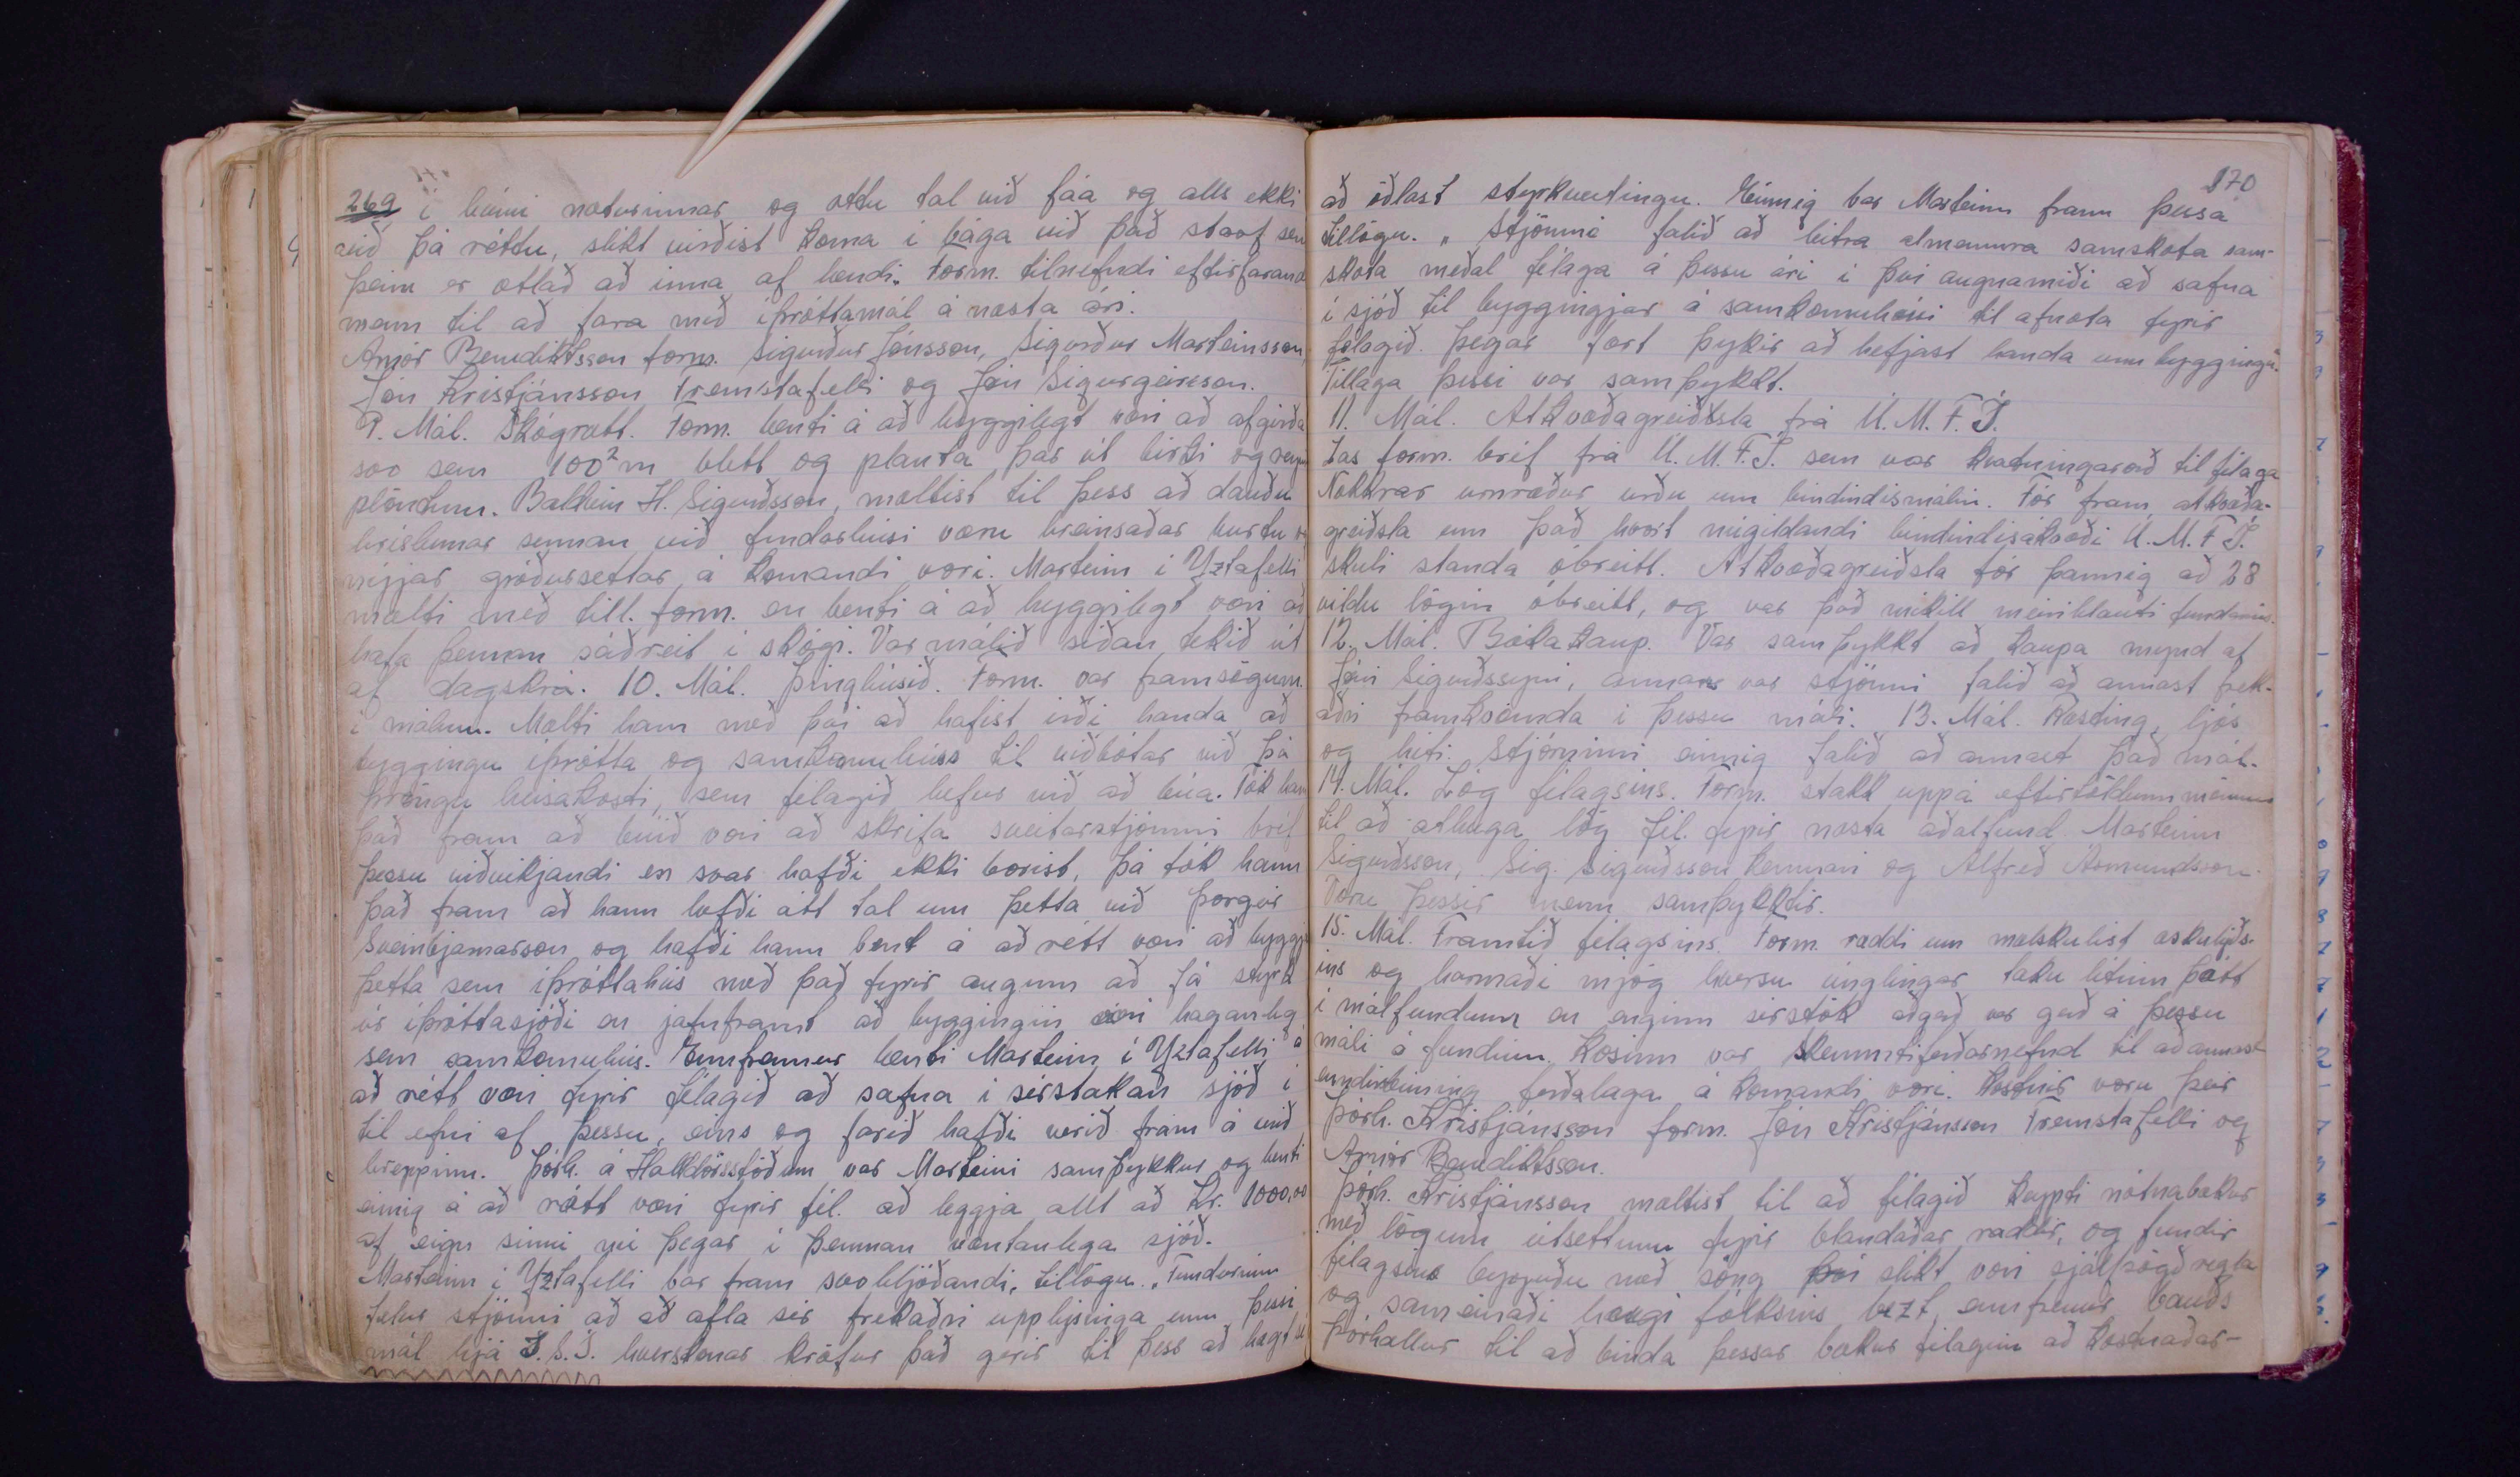 269 í húmi næturinnar og ættu tal við fáa og alls ekki
við þá réttu, slíkt virðist koma í bága við það starf sem
þeim er ætlað að inna af hendi. Form. tilnefndi eftirfarand
menn til að fara með íþróttamál á næsta ári.
Arnór Benediktsson form. Sigurður Jónsson, Sigurður Marteinsson,
Jón Kristjánsson Fremstafelli og Jón Sigurgeirsson.
9. Mál. Skógrækt. Form. benti á að hyggilegt væri að afgirða
svo sem 100²m blett og planta þar út birki og reyni
plöntum. Baldvin H. Sigurðsson, mæltist til þess að dauðu
hríslurnar sunnan við fundarhúsi væru hreinsaðar burtu og
nýjar gróðursettar á komandi vori. Marteinn í Yztafelli
mælti með till. form. en benti á að hyggilegt væri að
hafa þennan sáðreit í skógi. Var málið síðan tekið út
af dagskrá. 10. Mál. Þinghúsið. Form. var framsögum.
í málinu. Mælti hann með því að hafist irði handa að
byggingu íþrótta og samkomuhúss til viðbótar við þá
þröngu húsakosti, sem félagið hefur við að búa. Tók hann
það fram að búið væri að skrifa sveitarstjórnni bréf
þessu viðvikjandi en svar hafði ekki borist, þá tók hann
það fram að hann hefði átt tal um þetta við Þorgeir
Sveinbjarnarson og hafði hann bent á að rétt væri að byggja
þetta sem íþróttahús með það fyrir augum að fá styrk
úr íþróttasjóði en jafnframt að byggingin væri haganleg
sem samkomuhús. Ennfremur benti Marteinn í Yztafelli á
að rétt væri fyrir félagið að safna í sérstakan sjóð í
til efni af þessu, eins og farið hafði verið fram á við
hreppinn. Þórh. á Halldórsstöðum var Marteini samþykkur og benti
einig á að rétt væri fyrir fél. að leggja allt að kr. 1000,00
af eign sinni nú þegar í þennan væntanlega sjóð.
Marteinn í Yztafelli bar fram svohljóðandi, tillögu. „Fundurinn
felur stjórnni að að afla sér frekaðri upplýsinga um þessi
mál hjá Í.S.Í. hverskonar kröfur það gerir til þess að hægt sé
170
að öðlast styrkveitingu. Einnig bar Marteinn fram þessa
tillögu. „Stjórnni falið að leitra almennra samskota sam-
skota meðal félaga á þessu ári í því augnamiði að safna
í sjóð til byggingjar á samkomuhúsi til afnota fyrir
félagið. Þegar fært þykir að hefjast handa um byggingu.
Tillaga þessi var samþykkt.
11. Mál. Atkvæðagreiðsla frá U.M.F.Í.
Las form. bréf frá U.M.F.Í. sem var hvatningarorð til félaga
Nokkrar umræður urðu um bindindismálin. Fór fram atkvæða-
greiðsla um það hvort núgildandi bindindisákvæði U.M.F.Í.
skuli standa óbreitt. Atkvæðagreiðsla fór þannig að 28
vildu lögin óbreitt, og var það mikill meirihluti fundarins.
12. Mál. Bókakaup. Var samþykkt að kaupa mynd af
Jóni Sigurðssyni, annars var stjórnni falið að annast frek-
aðri framkvæmda í þessu máli. 13. Mál. Ræsting, ljós
og hiti. Stjórninni einnig falið að annast það mál.
14. Mál. Lög félagsins. Form. stakk uppá eftirtöldum mönnum
til að athuga lög fél. fyrir næsta aðalfund. Marteinn
Sigurðsson, Sig. Sigurðsson kennari og Alfreð Ásmundsson.
Voru þessir menn samþykktir.
15. Mál. Framtíð félagsins. Form. ræddi um mælskulist æskulýðs-
ins og harmaði mjög hversu unglingar taku lítinn þátt
í málfundum en enginn sérstök aðgað var gerð á þessu
máli á fundinum. Kosinn var skemmtiferðarnefnd til að annast
ferðalaga á komandi vori. Kosnir voru þeir
Þórh. Kristjánsson form. Jón Kristjánsson Fremstafelli og
Arnór Benediktsson.
Þórh. Kristjánsson mæltist til að félagið keypti nótnabækur
með lögum útsettum fyrir blandaðar raddir, og fundir
félagsins byrjuðu með söng því slíkt væri sjálfsögð regla
og sameinaði hugi fólksins bezt, ennfremur bauðs
Þórhallur til að binda þessar bækur félaginu að kostnaðar-